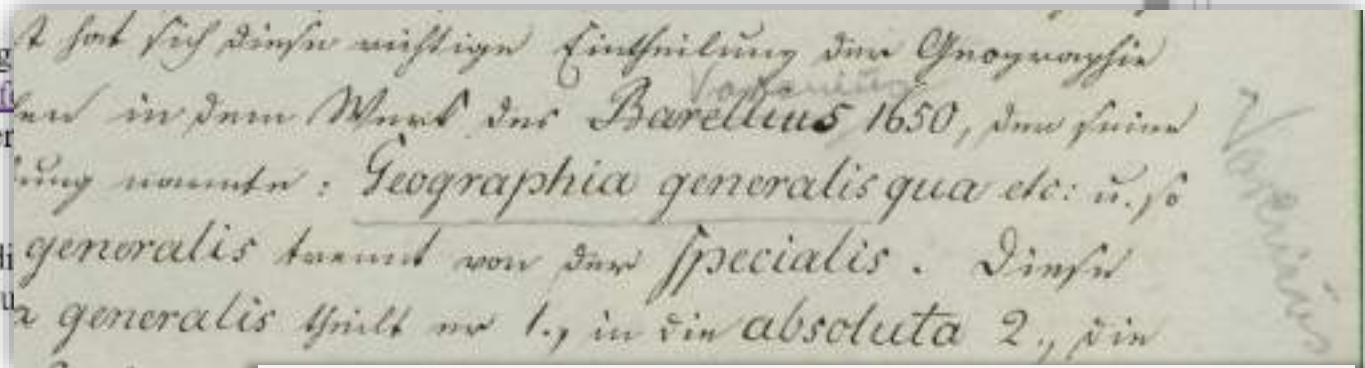 t hat sich diese richtige Eintheilung der Geographie
Varenius
en in dem Werk des Barellius 1650, der seine
ung nannte: Geographia generalis qua etc: u. so
generalis trennt von der specialis. Diese
a generalis theilt er 1., in die absoluta 2., die
Varenius